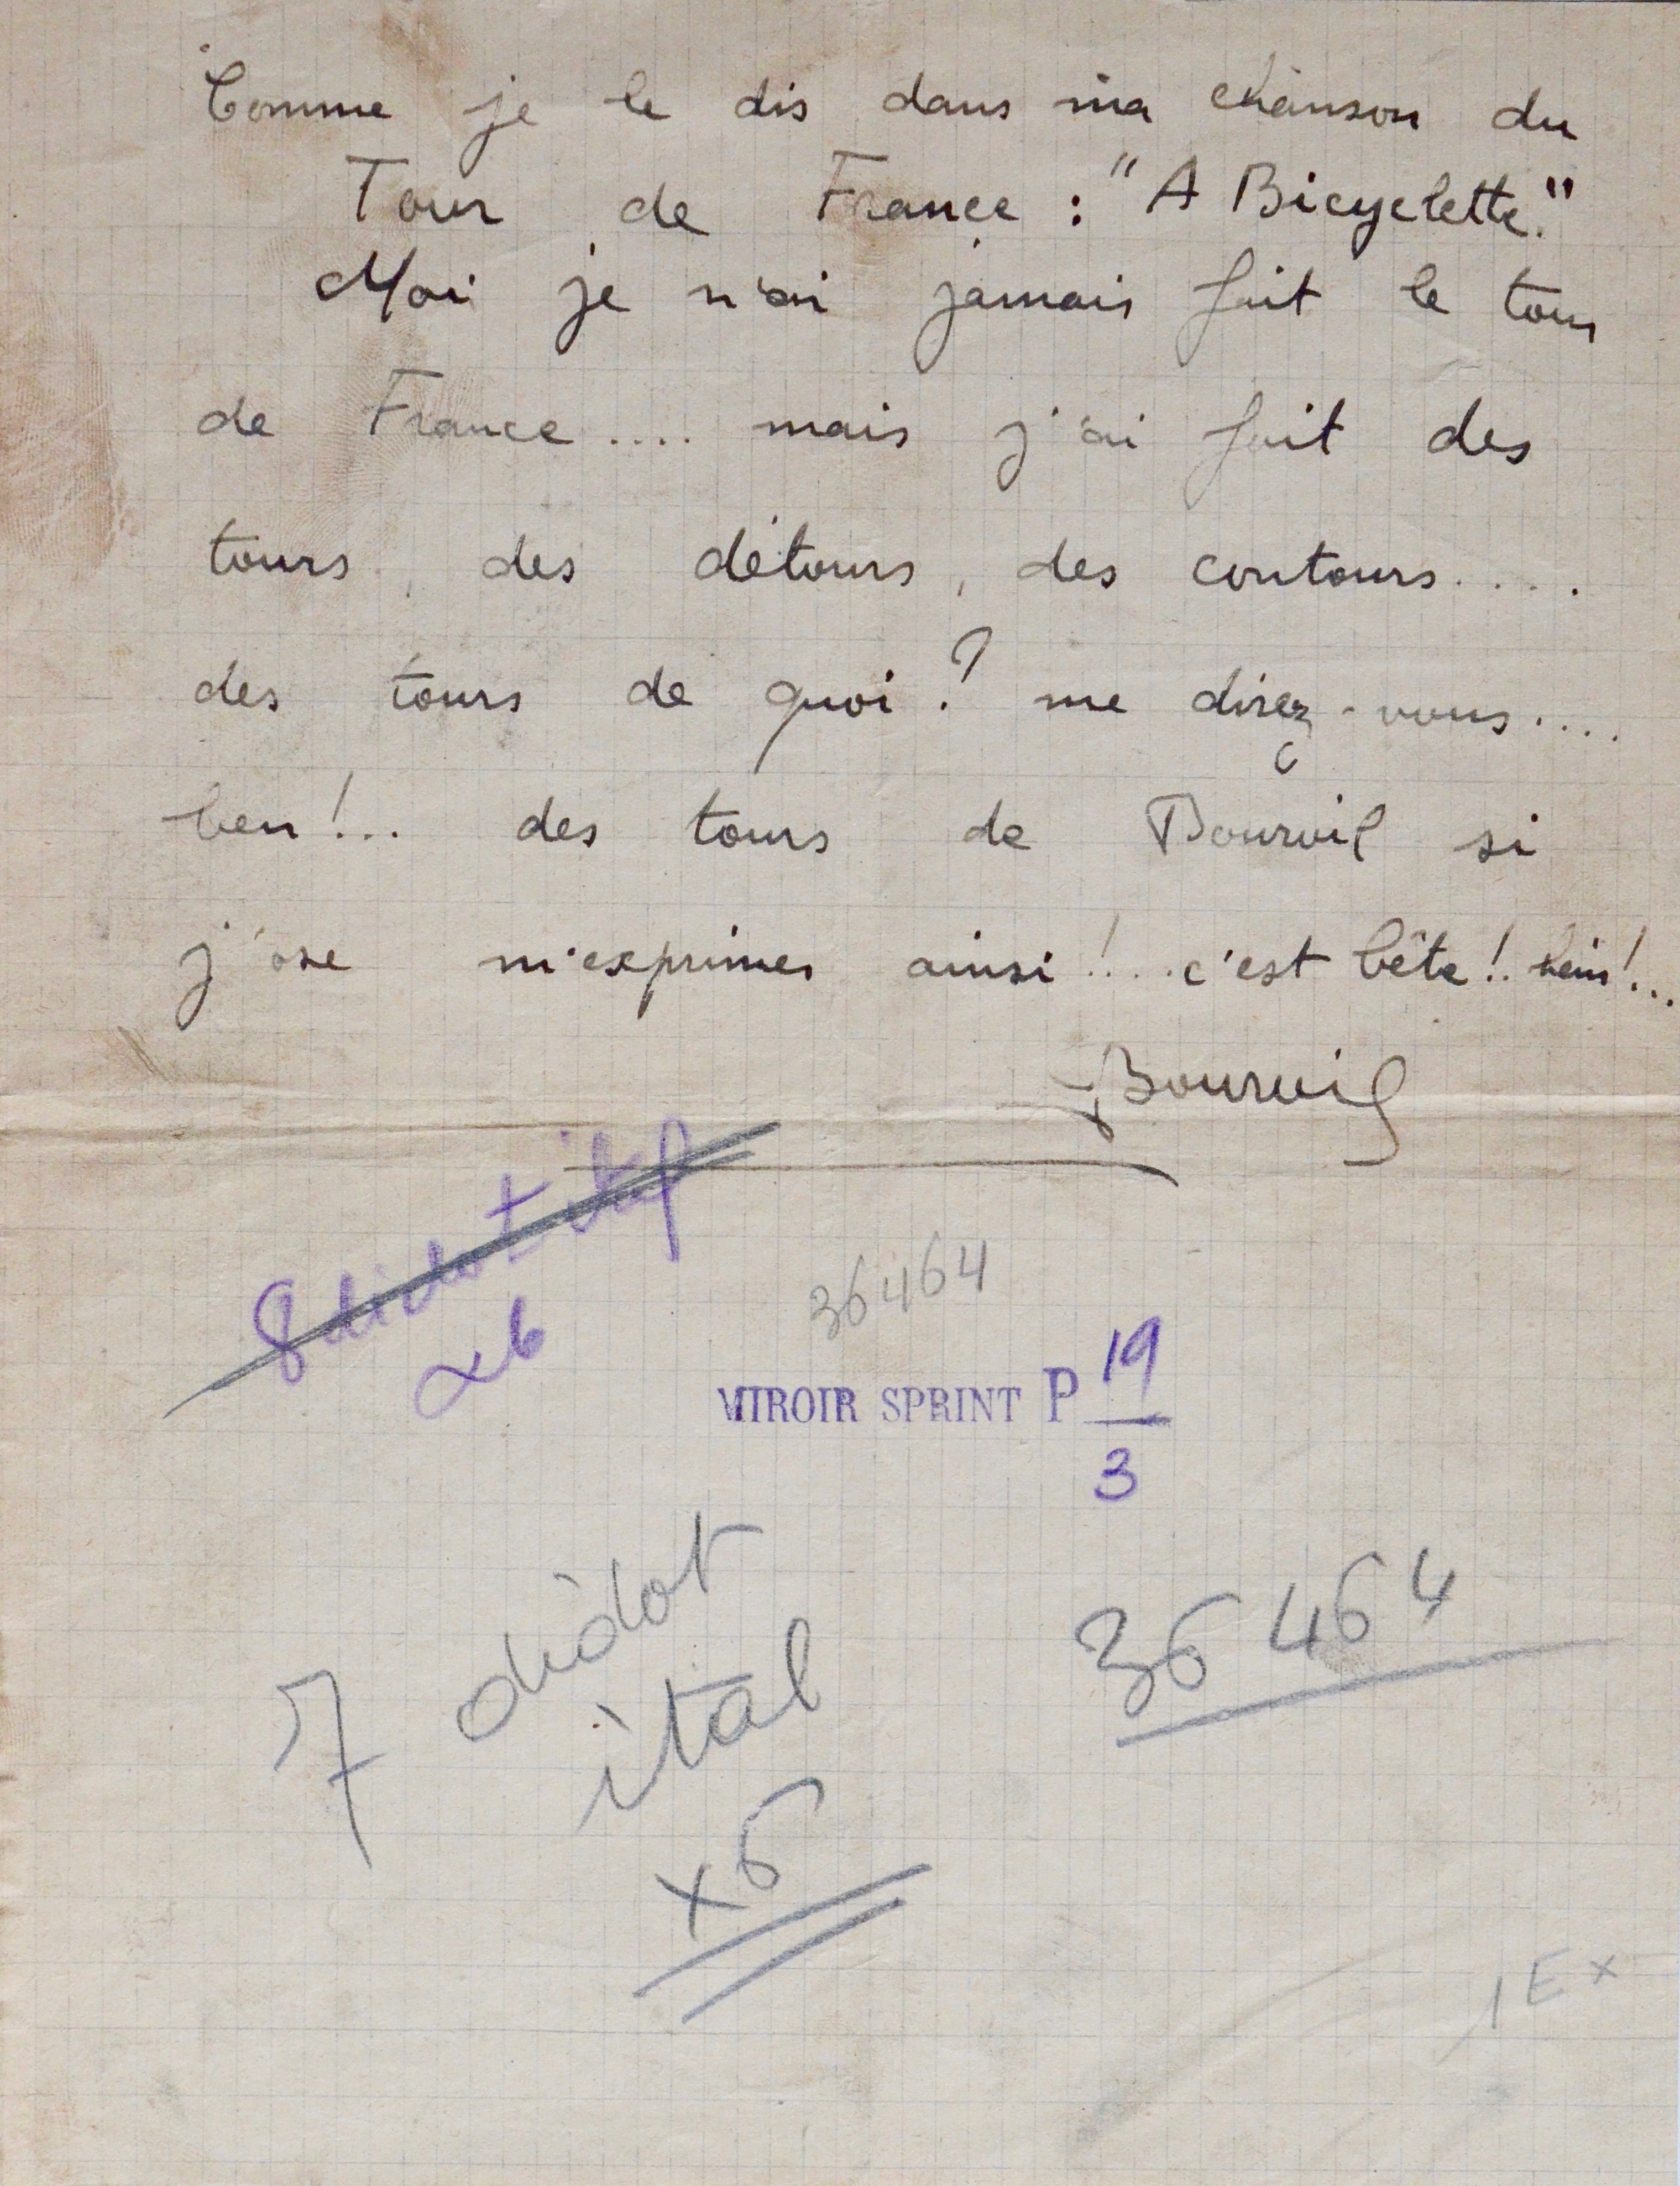 Comme je le dis dans ma chanson du
Tour de France : "A Bicyclette."
Moi je n'ai jamais fait le tour
de France .... mais j'ai fait des
tours, des détours, des contours ....
des tours de quoi ? me direz-vous ....
ben !.. des tours de Bourvil si
j'ose m'exprimer ainsi !... c'est bête !. hein !...
Bourvil
8 didot ital
x6
36464
MIROIR SPRINT P 19
3
7 didot
ital
x6
36464
1 Ex